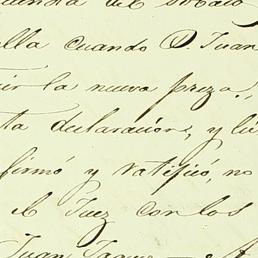 del
ella cuando D. Juan
la nueva pieza,
ta declaracion, y
firmó y ratificó, no
el Juez con los
Juan